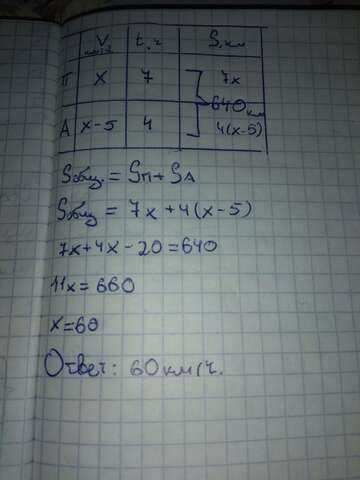 V км/ч t, ч S, км
П x 7 7x
640 км
А x-5 4 4(x-5)
Sобщ. = Sп + SА
Sобщ. = 7x + 4(x-5)
7x+4x-20=640
11x=660
x=60
Ответ: 60 км/ч.